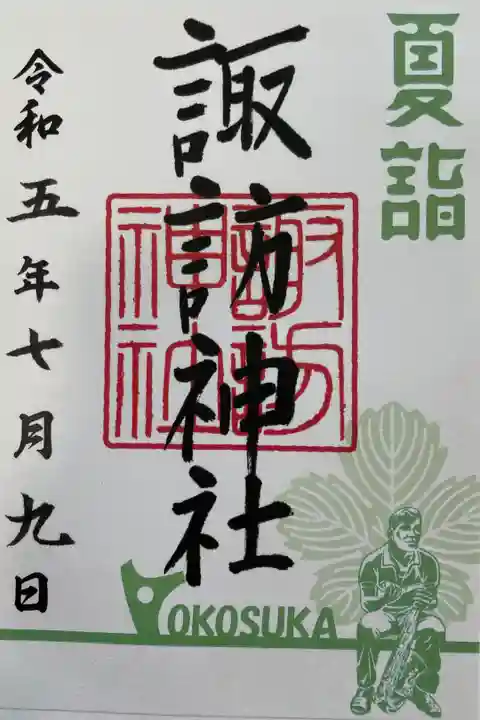 夏詣
諏訪神社
諏訪
神社
令和五年七月九日
YOKOSUKA